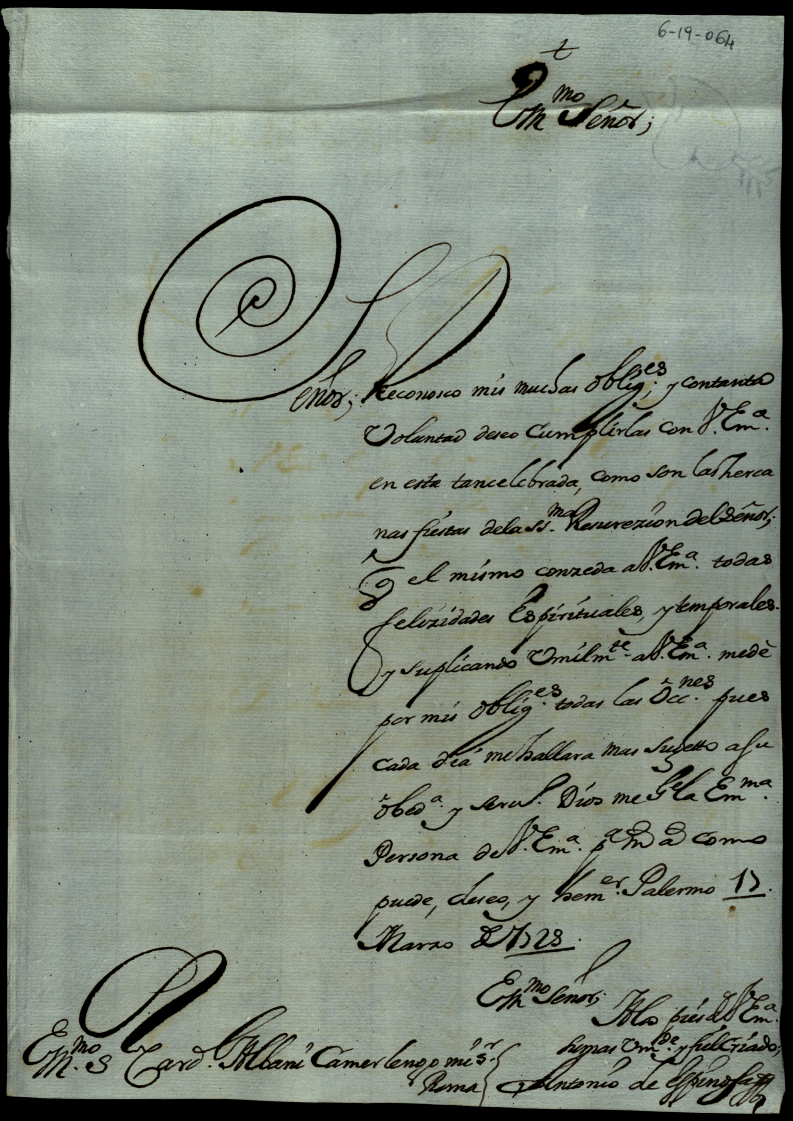 6-19-064
t
Em.mo Señor;
Señor; Reconosco mis muchas oblig.es; y contanta
Voluntad deseo Cumplirlas con V. Em.a
en esta tancelebrada, como son las
nas fiestas dela SS.ma Resurezion del Señor;
Q el mismo conzeda a V. Em.a todas
felizidades Espirituales, y temporales.
y suplicando Vmilm.te a V. Em.a mede
por mis oblig.es todas las Occ.nes pues
cada dia me hallara mas sugetto a su
obed.a y Dios me G.e la Em.ma
Persona de V. Em.a p.a como
puede, deseo, y Palermo 17
Marzo de 1728.
Em.mo Señor;
A los pies de V. Em.a
Vm.de y fiel Criado;
Em.mo S Card. Albani Camerlengo mi s.r
Roma Antonio de Espinosa